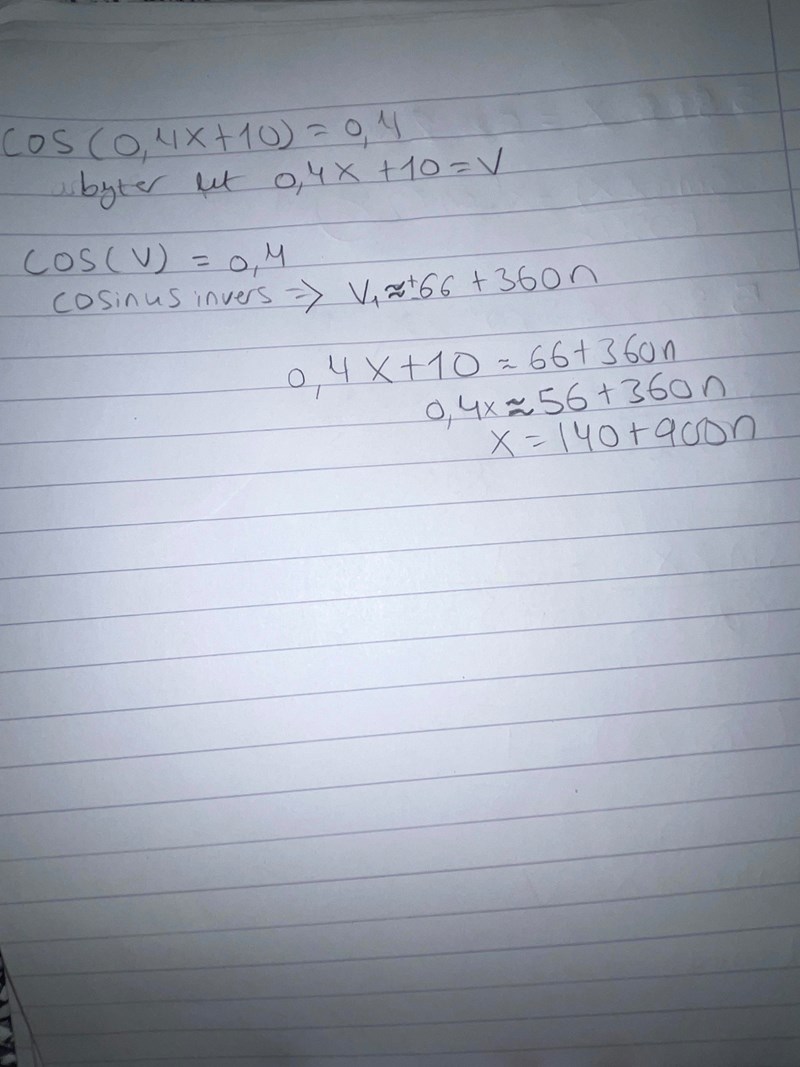 cos(0,4x+10)=0,4
byter ut 0,4x+10=V
cos(V) = 0,4
cosinus invers => V₁≈±66+360n
0,4x+10≈66+360n
0,4x≈56+360n
x=140+900n